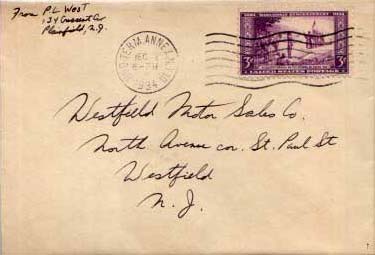 From P.L West
134 Crescent Av
Plainfield, N.J.
ANNEX, N.Y.
DEC
6 PM
1934
3¢
3¢
UNITED STATES POSTAGE
Westfield Motor Sales Co.
North Avenue cor. St. Paul St
Westfield
N. J.